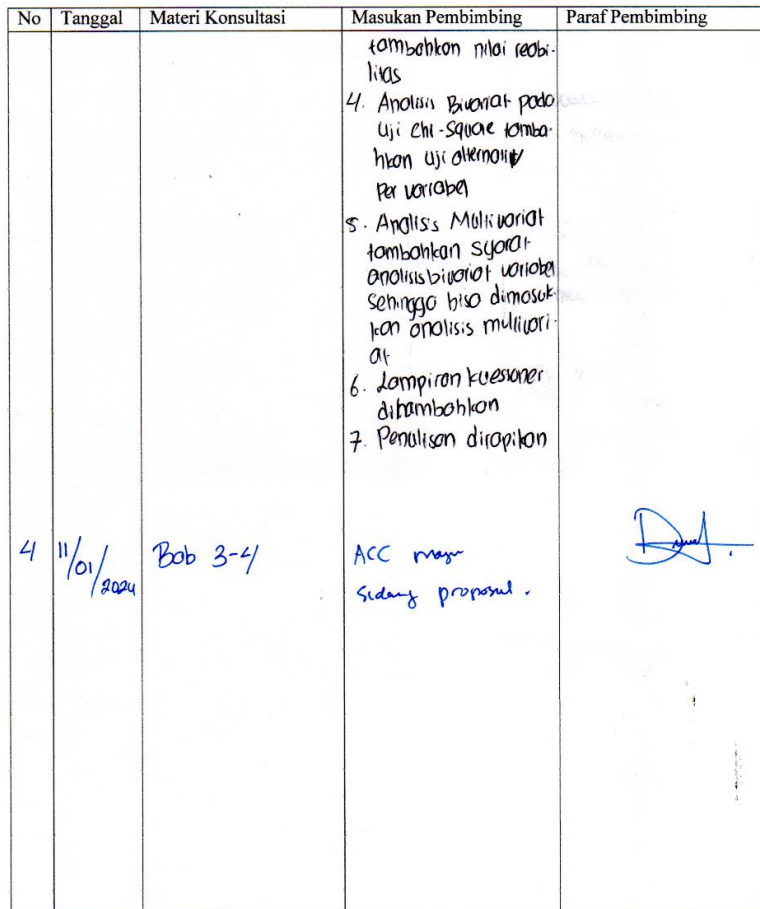 No Tanggal Materi Konsultasi Masukan Pembimbing Paraf Pembimbing
tambahkan nilai reabi-
litas
4. Analisis Bivariat pada
Uji Chi-Square tamba-
hkan Uji alternatif
Per variabel
5. Analisis Multivariat
tambahkan syarat
analisis bivariat variabel
sehingga bisa dimasuk-
kan analisis multivari-
at
6. Lampiran kuesioner
ditambahkan
7. Penulisan dirapikan
4 11/01/2024 Bab 3-4 ACC maju
Sidang proposal.